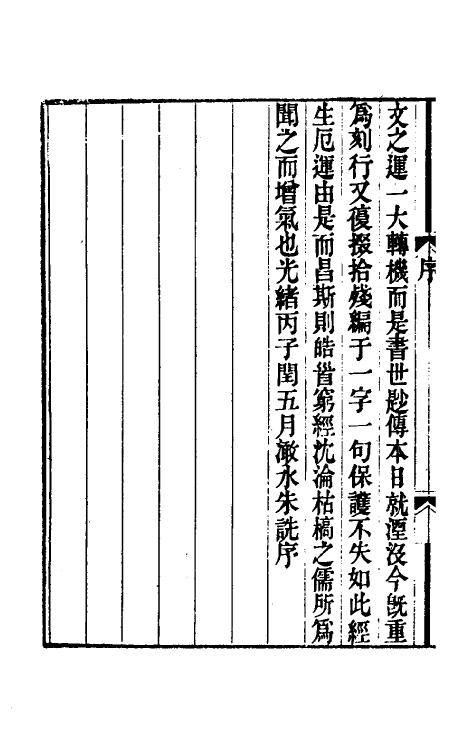 序
文之運一大轉機而是書世尟傳本日就湮沒今旣重
爲刻行又復掇拾殘編于一字一句保護不失如此經
生厄運由是而昌斯則皓首窮經沈淪枯槁之儒所爲
聞之而增氣也光緒丙子閏五月漵水朱詵序